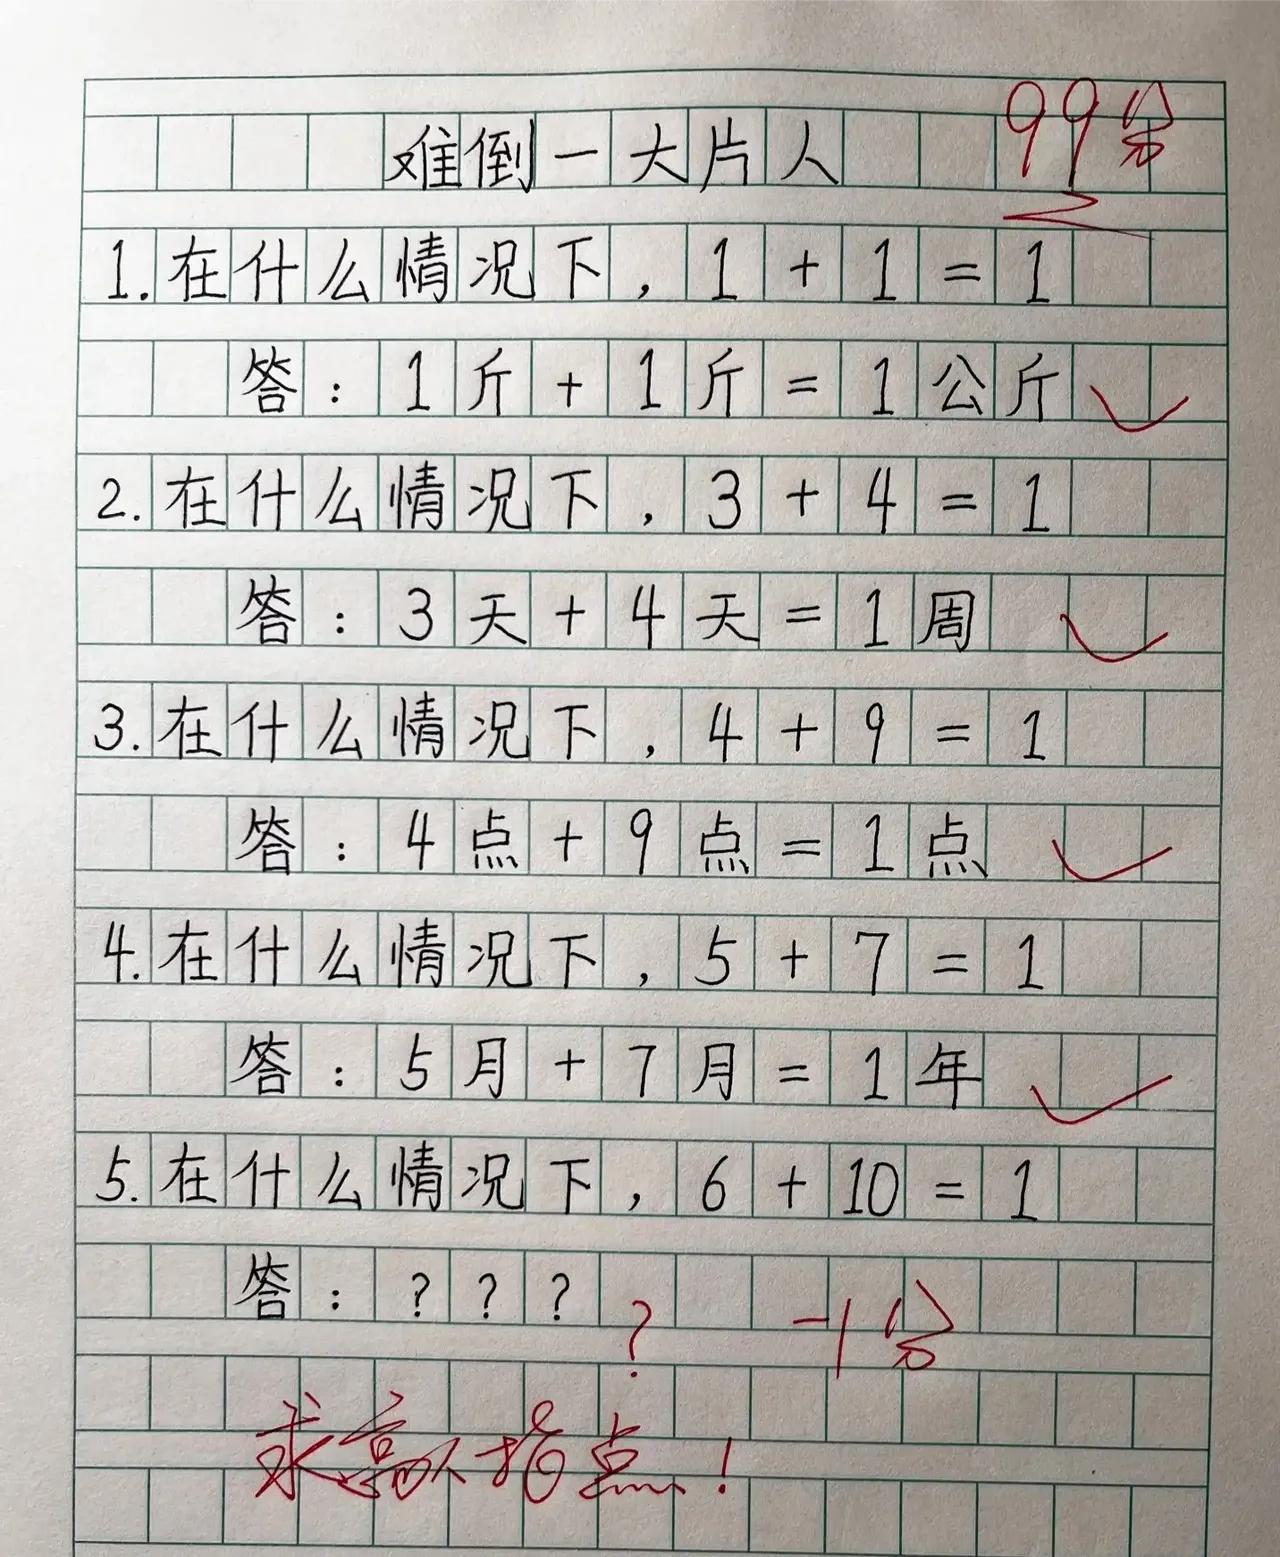 难倒一大片人 99分
1.在什么情况下，1+1=1
答：1斤+1斤=1公斤
2.在什么情况下，3+4=1
答：3天+4天=1周
3.在什么情况下，4+9=1
答：4点+9点=1点
4.在什么情况下，5+7=1
答：5月+7月=1年
5.在什么情况下，6+10=1
答：??? ? -1分
求高人指点！